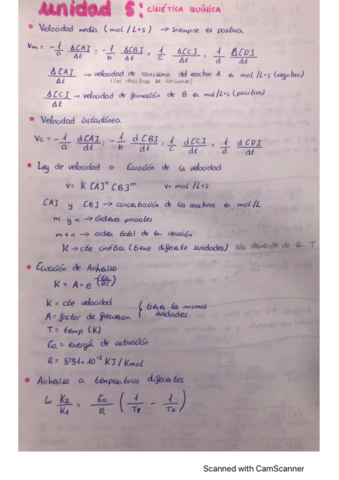 Unidad 5: CINÉTICA QUÍMICA
• Velocidad media (mol/L·s) → siempre es positiva
Vm = -1/a Δ[A]/Δt = -1/b Δ[B]/Δt = 1/c Δ[C]/Δt = 1/d Δ[D]/Δt
Δ[A]/Δt → velocidad de consumo del reactivo A en mol/L·s (negativo)
(los reactivos se consumen)
Δ[C]/Δt → velocidad de formación de B en mol/L·s (positiva)
• Velocidad instantánea
Vc = -1/a d[A]/dt = -1/b d[B]/dt = 1/c d[C]/dt = 1/d d[D]/dt
• Ley de velocidad o Ecuación de la velocidad
v = K [A]ⁿ [B]ᵐ v = mol/L·s
[A] y [B] → concentración de los reactivos en mol/L
m y n → órdenes parciales
m + n → orden total de la reacción
K → cte cinética (tiene diferente unidades) solo depende de la T
• Ecuación de Arrhenius
K = A · e^-(Ea/Rt)
K = cte velocidad
A = factor de frecuencia } tienen las mismas unidades
T = temp (K)
Ea = energía de activación
R = 8'31 · 10⁻³ KJ/Kmol
• Arrhenius a temperaturas diferentes
ln K2/K1 = Ea/R (1/T1 - 1/T2)
Scanned with CamScanner